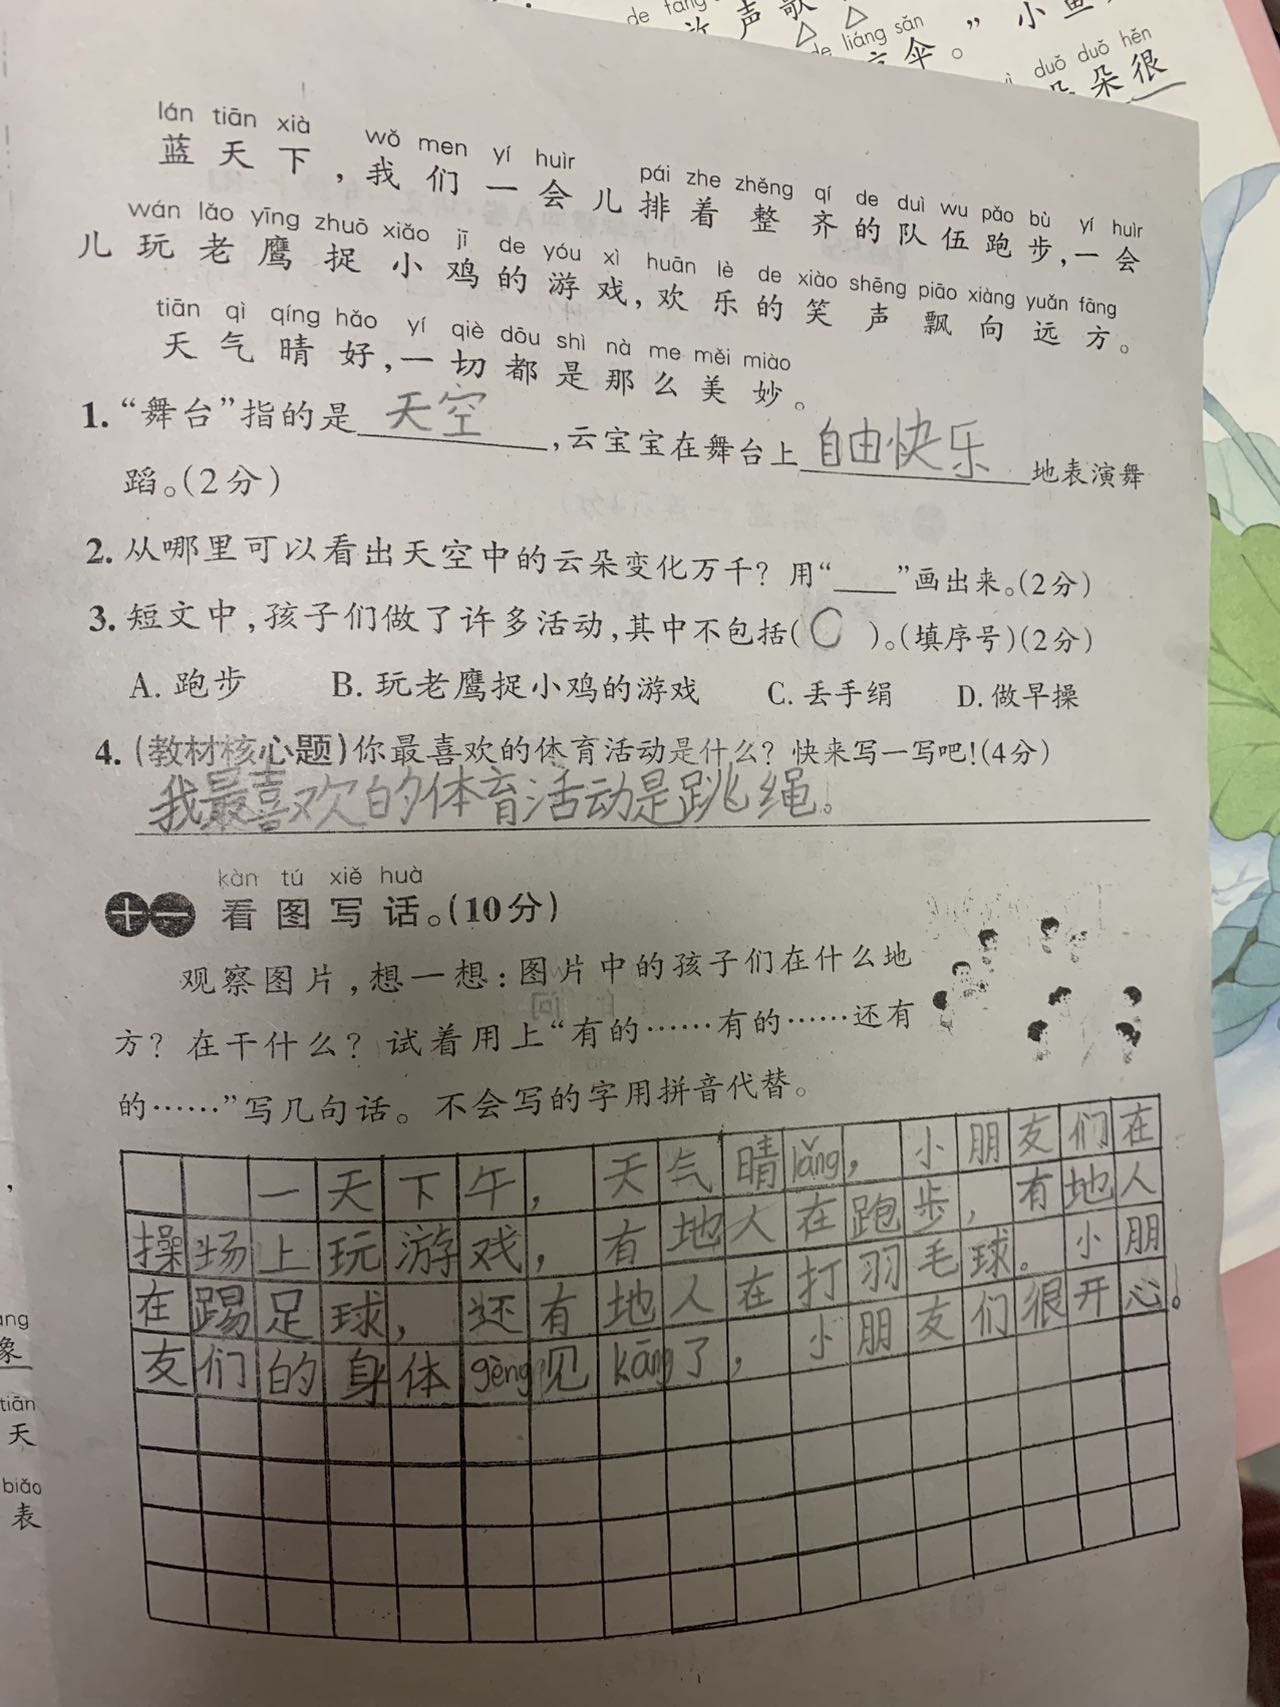 de fàng
声歌
de liáng sǎn
伞。”小鱼
duǒ duǒ hěn
朵朵很
lán tiān xià wǒ men yí huìr pái zhe zhěng qí de duì wu pǎo bù yí huìr
蓝天下，我们一会儿排着整齐的队伍跑步，一会
wán lǎo yīng zhuō xiǎo jī de yóu xì huān lè de xiào shēng piāo xiàng yuǎn fāng
儿玩老鹰捉小鸡的游戏，欢乐的笑声飘向远方。
tiān qì qíng hǎo yí qiè dōu shì nà me měi miào
天气晴好，一切都是那么美妙。
1.“舞台”指的是天空，云宝宝在舞台上自由快乐地表演舞
蹈。(2分)
2.从哪里可以看出天空中的云朵变化万千？用“____”画出来。(2分)
3.短文中，孩子们做了许多活动，其中不包括(C)。(填序号)(2分)
A.跑步 B.玩老鹰捉小鸡的游戏 C.丢手绢 D.做早操
4.(教材核心题)你最喜欢的体育活动是什么？快来写一写吧！(4分)
我最喜欢的体育活动是跳绳。
kàn tú xiě huà
十一 看图写话。(10分)
观察图片，想一想：图片中的孩子们在什么地
方？在干什么？试着用上“有的……有的……还有
的……”写几句话。不会写的字用拼音代替。
一天下午，天气晴lǎng，小朋友们在
操场上玩游戏，有地人在跑步，有地人
在踢足球，还有地人在打羽毛球。小朋
友们的身体gèng见kāng了，小朋友们很开心。
ang
象
tiān
天
biǎo
表